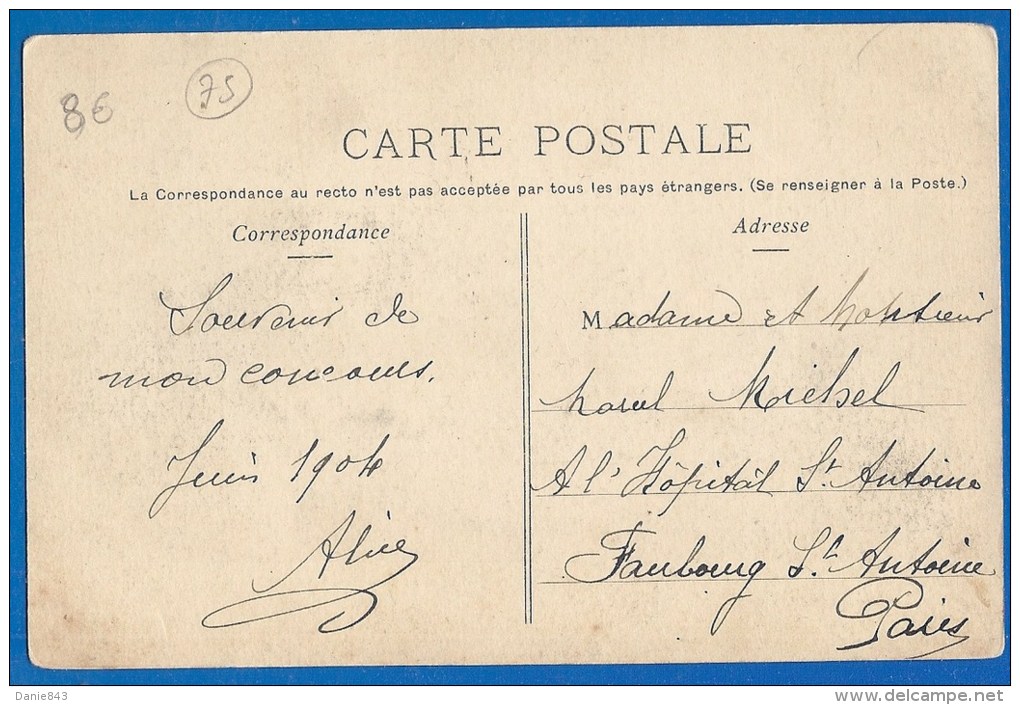 8€
75
CARTE POSTALE
La Correspondance au recto n'est pas acceptée par tous les pays étrangers. (Se renseigner à la Poste.)
Correspondance
Souvenir de
mon concours.
Juin 1904
Alice
Adresse
Madame et Monsieur
Michel
A l'Hôpitâl St. Antoine
Faubourg St. Antoine
Paris
Danie843
www.delcampe.net